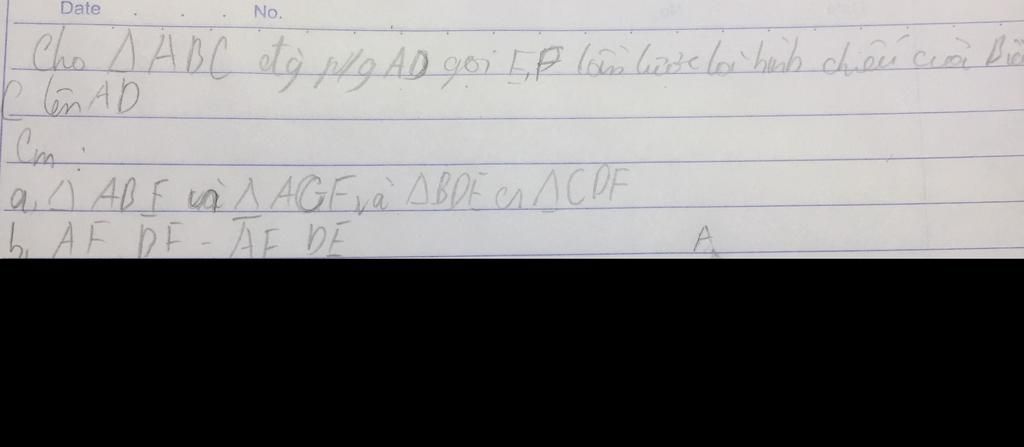 Date . . . No.
Cho Δ ABC đg p/g AD gọi E, F lần lược là hình chiếu của B và
C lên AD
Cm :
a, Δ ABE và Δ ACF, và ΔBDE ∽ ΔCDF
b, AE DF = AF DE
A